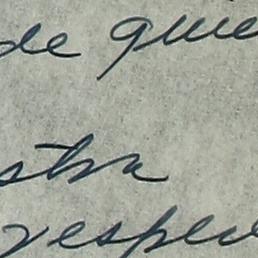 de que
stra
respec